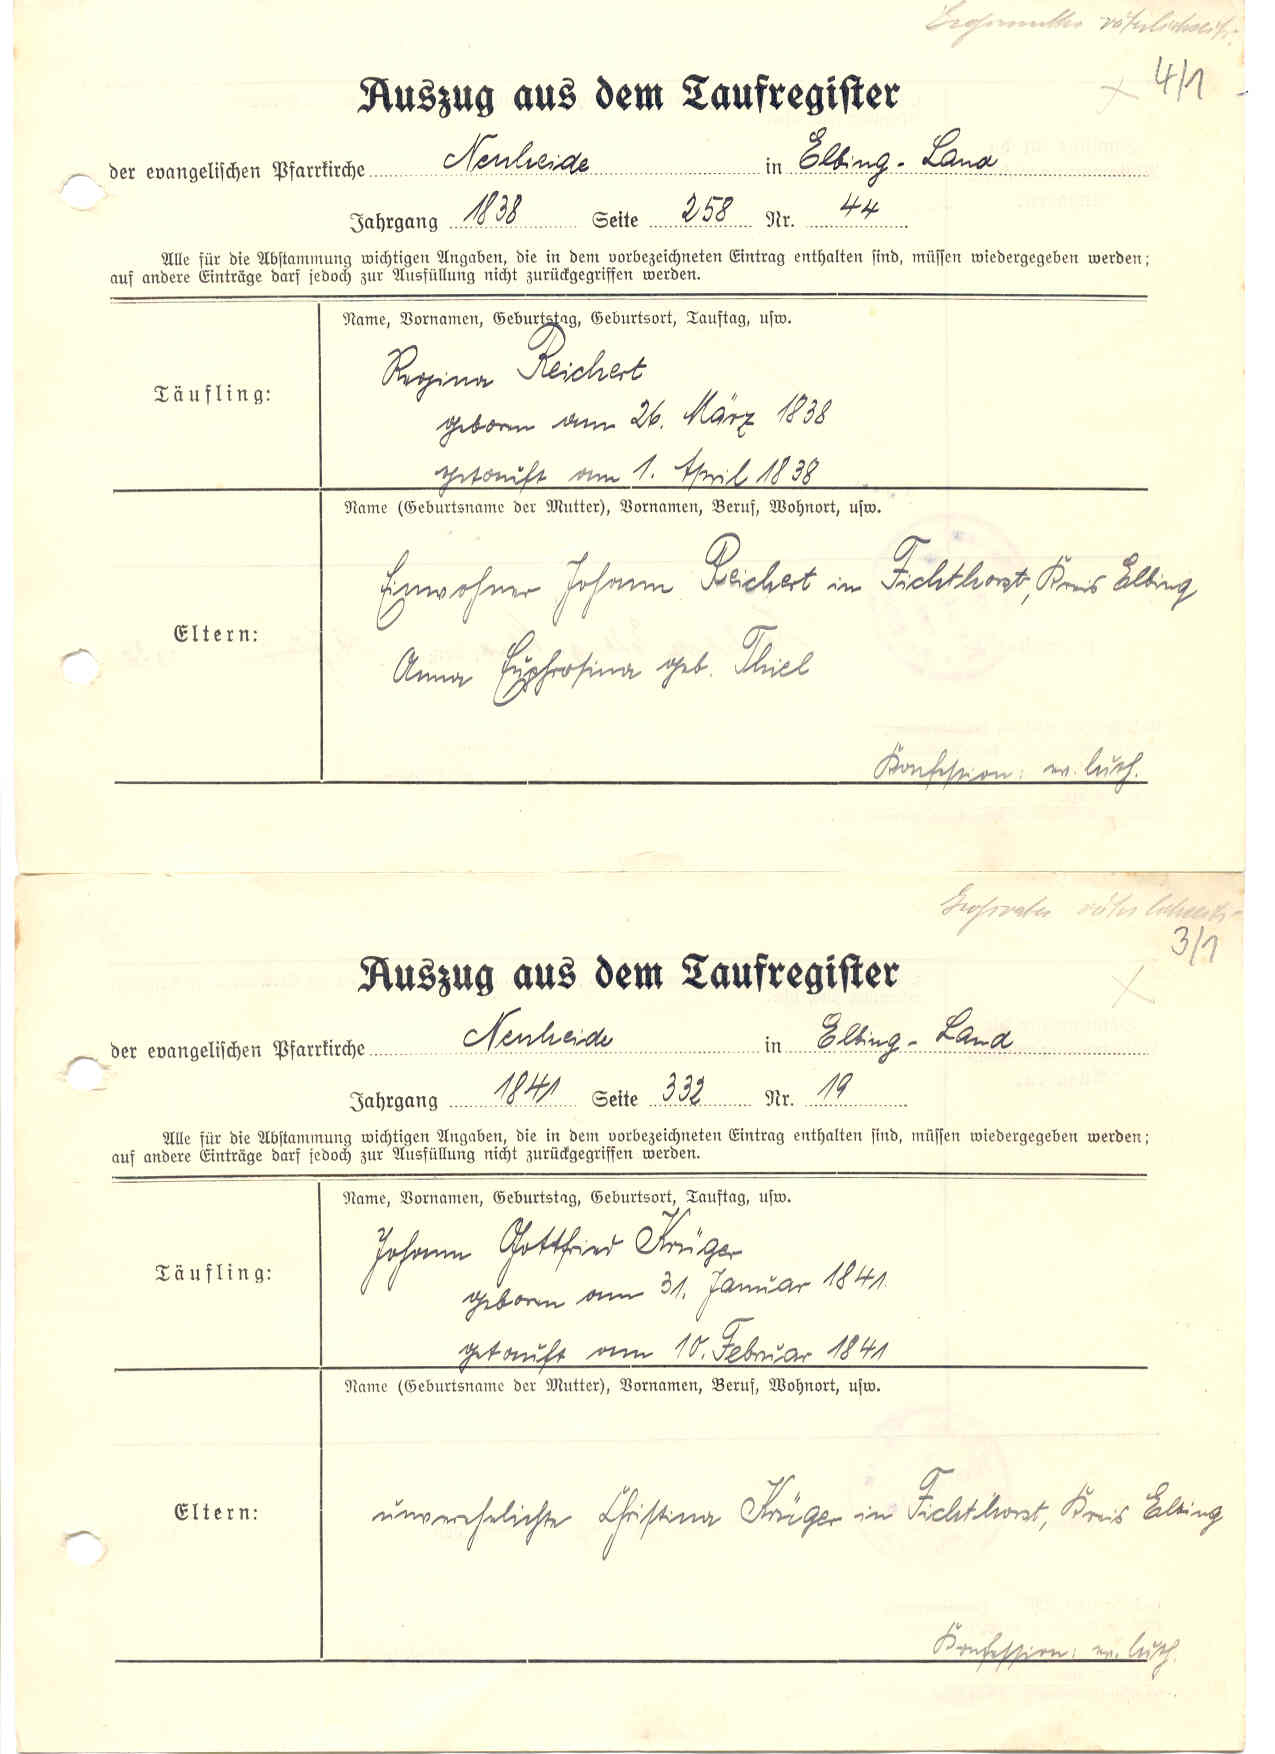 Großmutter väterlicherseits.
4/1
Auszug aus dem Taufregister
der evangelischen Pfarrkirche Neuheide in Elbing-Land
Jahrgang 1838 Seite 258 Nr. 44
Alle für die Abstammung wichtigen Angaben, die in dem vorbezeichneten Eintrag enthalten sind, müssen wiedergegeben werden;
auf andere Einträge darf jedoch zur Ausfüllung nicht zurückgegriffen werden.
Name, Vornamen, Geburtstag, Geburtsort, Tauftag, usw.
Regina Reichert
Täufling:
geboren am 26. März 1838
getauft am 1. April 1838
Name (Geburtsname der Mutter), Vornamen, Beruf, Wohnort, usw.
Einwohner Johann Reichert in Fichthorst, Kreis Elbing
Eltern:
Anna Euphrosina geb. Thiel
Konfession: ev. luth.
Großvater väterlicherseits
3/1
Auszug aus dem Taufregister
der evangelischen Pfarrkirche Neuheide in Elbing-Land
Jahrgang 1841 Seite 332 Nr. 19
Alle für die Abstammung wichtigen Angaben, die in dem vorbezeichneten Eintrag enthalten sind, müssen wiedergegeben werden;
auf andere Einträge darf jedoch zur Ausfüllung nicht zurückgegriffen werden.
Name, Vornamen, Geburtstag, Geburtsort, Tauftag, usw.
Johann Gottfried Krüger
Täufling:
geboren am 31. Januar 1841
getauft am 10. Februar 1841
Name (Geburtsname der Mutter), Vornamen, Beruf, Wohnort, usw.
Eltern:
unverehelichte Christina Krüger in Fichthorst, Kreis Elbing
Konfession: ev. luth.